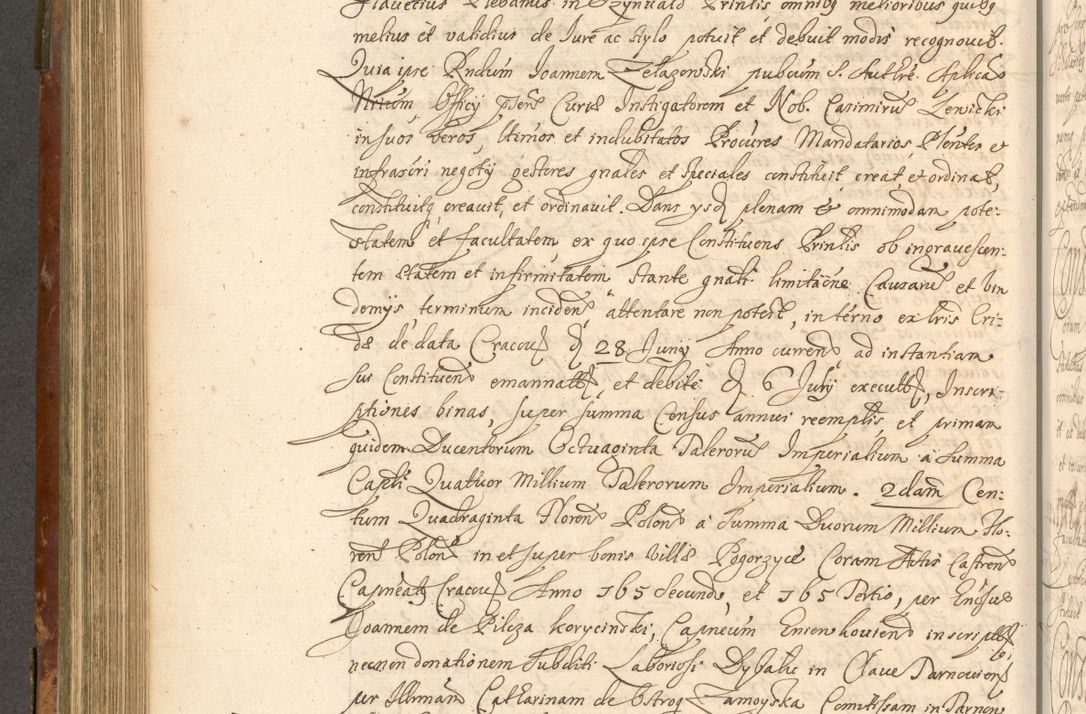 Flavetius Plebanus in Szynwald Prñtis omnibq melioribus quibq
melius et validius de Jure ac stylo potuit et debuit modis recognovit.
Quia ipse Rndum Joannem Zelazowski pubcum S. Authte. Aplica
Nrium Officy Curiæ Instigatorem et Nob. Casimirũ Lewicki
in suos veros, ltimos et indubitatos Procures Mandatarios, Plentes et
infrascri negoty gestores gnales et speciales constituit creat et ordinat,
constituitq creavit, et ordinavit. Dans ysd plenam et omnimodam pote:
statem et facultatem ex quo ipse Constituens Prñtis ob ingravescen:
tem ætatem et infirmitatem stante gnati limitãone Causarũ et Vin
demijs terminum inciden attentare non potest, in terno ex lris Cri:
de data Cracou d 28 Juny Anno curren ad instantiam
sui Constituen emannatt et debite d 6 July executt, Inscri:
ptiones binas, super summa Census annui reemptlis et primam
quidem Ducentorum Octuaginta Talerorũ Imperialium a summa
Capitli Quatuor Millium Talerorum Imperialium. 2dam Cen:
tum Quadraginta Floren Polon a summa Duorum Millium Flo:
ren Polon in et super bonis Villis Pogorzyce Coram Actis Castren
Capneat Cracou Anno 165 Secundo, et 165 Tertio, per Encisus
Joannem de Pilcza Koryciński, Capneum inscriptt
necnon donationem Subditi Laboriosi Dybalic in Clave Tarnovien
per Illrmam Catharinam de Ostrog Zamoyska Comitissam in Tarnow